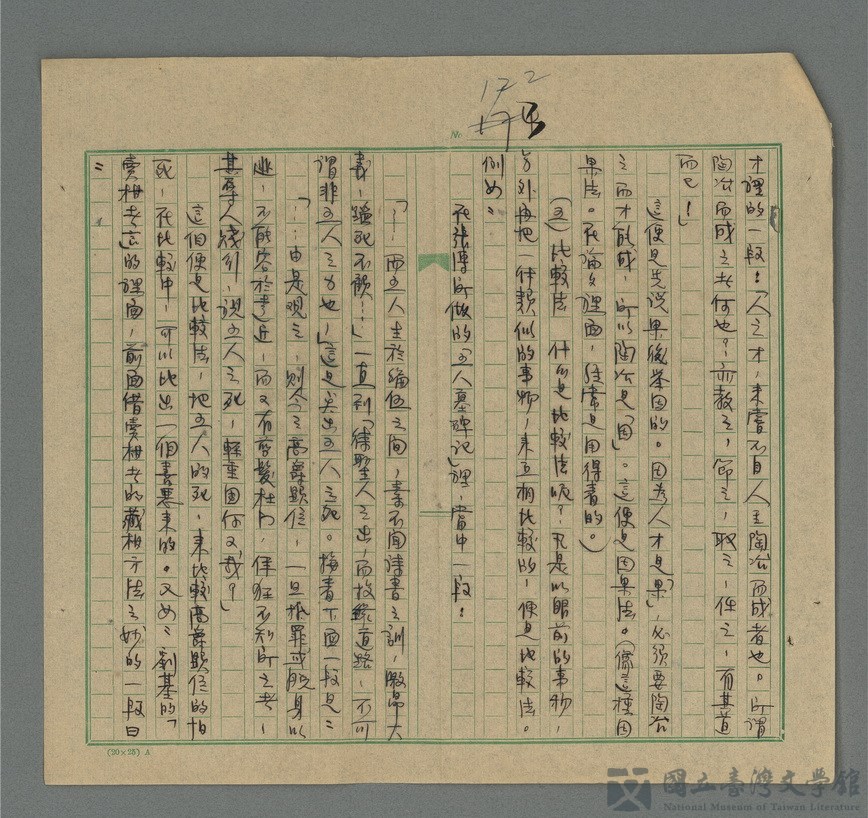 172
No.
才裡的一段：「人之才，未嘗不自人主陶冶而成者也。所謂
陶冶而成之者何也？亦教之，節之，取之，任之，有其道
而已！」
這便是先說果後举因的。因为人才是「果」，必須要陶冶
之而才能成，所以陶冶是「因」。這便是因果法。（像這種因
果法。在論文裡面，経常是用得着的。）
（五）比較法　什么是比較法呢？凡是以眼前的事物，
另外再把一件類似的事物，来互相比較的，便是比較法。
例如：
在張溥所做的「五人墓碑記」裡，當中一段：
「…而五人生於编伍之間，素不闻詩書之訓，激昂大
義，蹈死不顧…」一直到「待聖人之出，而投繯道路，不可
謂非五人之力也，」這是突出五人之死。接着下面一段是：
「…由是观之，則今之高爵顯位，一旦抵罪或脱身以
逃，不能容於遠近，而又有剪髮杜门，佯狂不知所之者，
其辱人賤行，視五人之死，輕重固何如哉？」
這個便是比較法，把五人的死，来比較高爵顯位的怕
死，在比較中，可以比出一個善悪来的。又如：劉基的「
賣柑者言」的裡面，前面借賣柑者的藏柑方法之妙的一段曰
：
(20×25) A
國立臺灣文學館
National Museum of Taiwan Literature